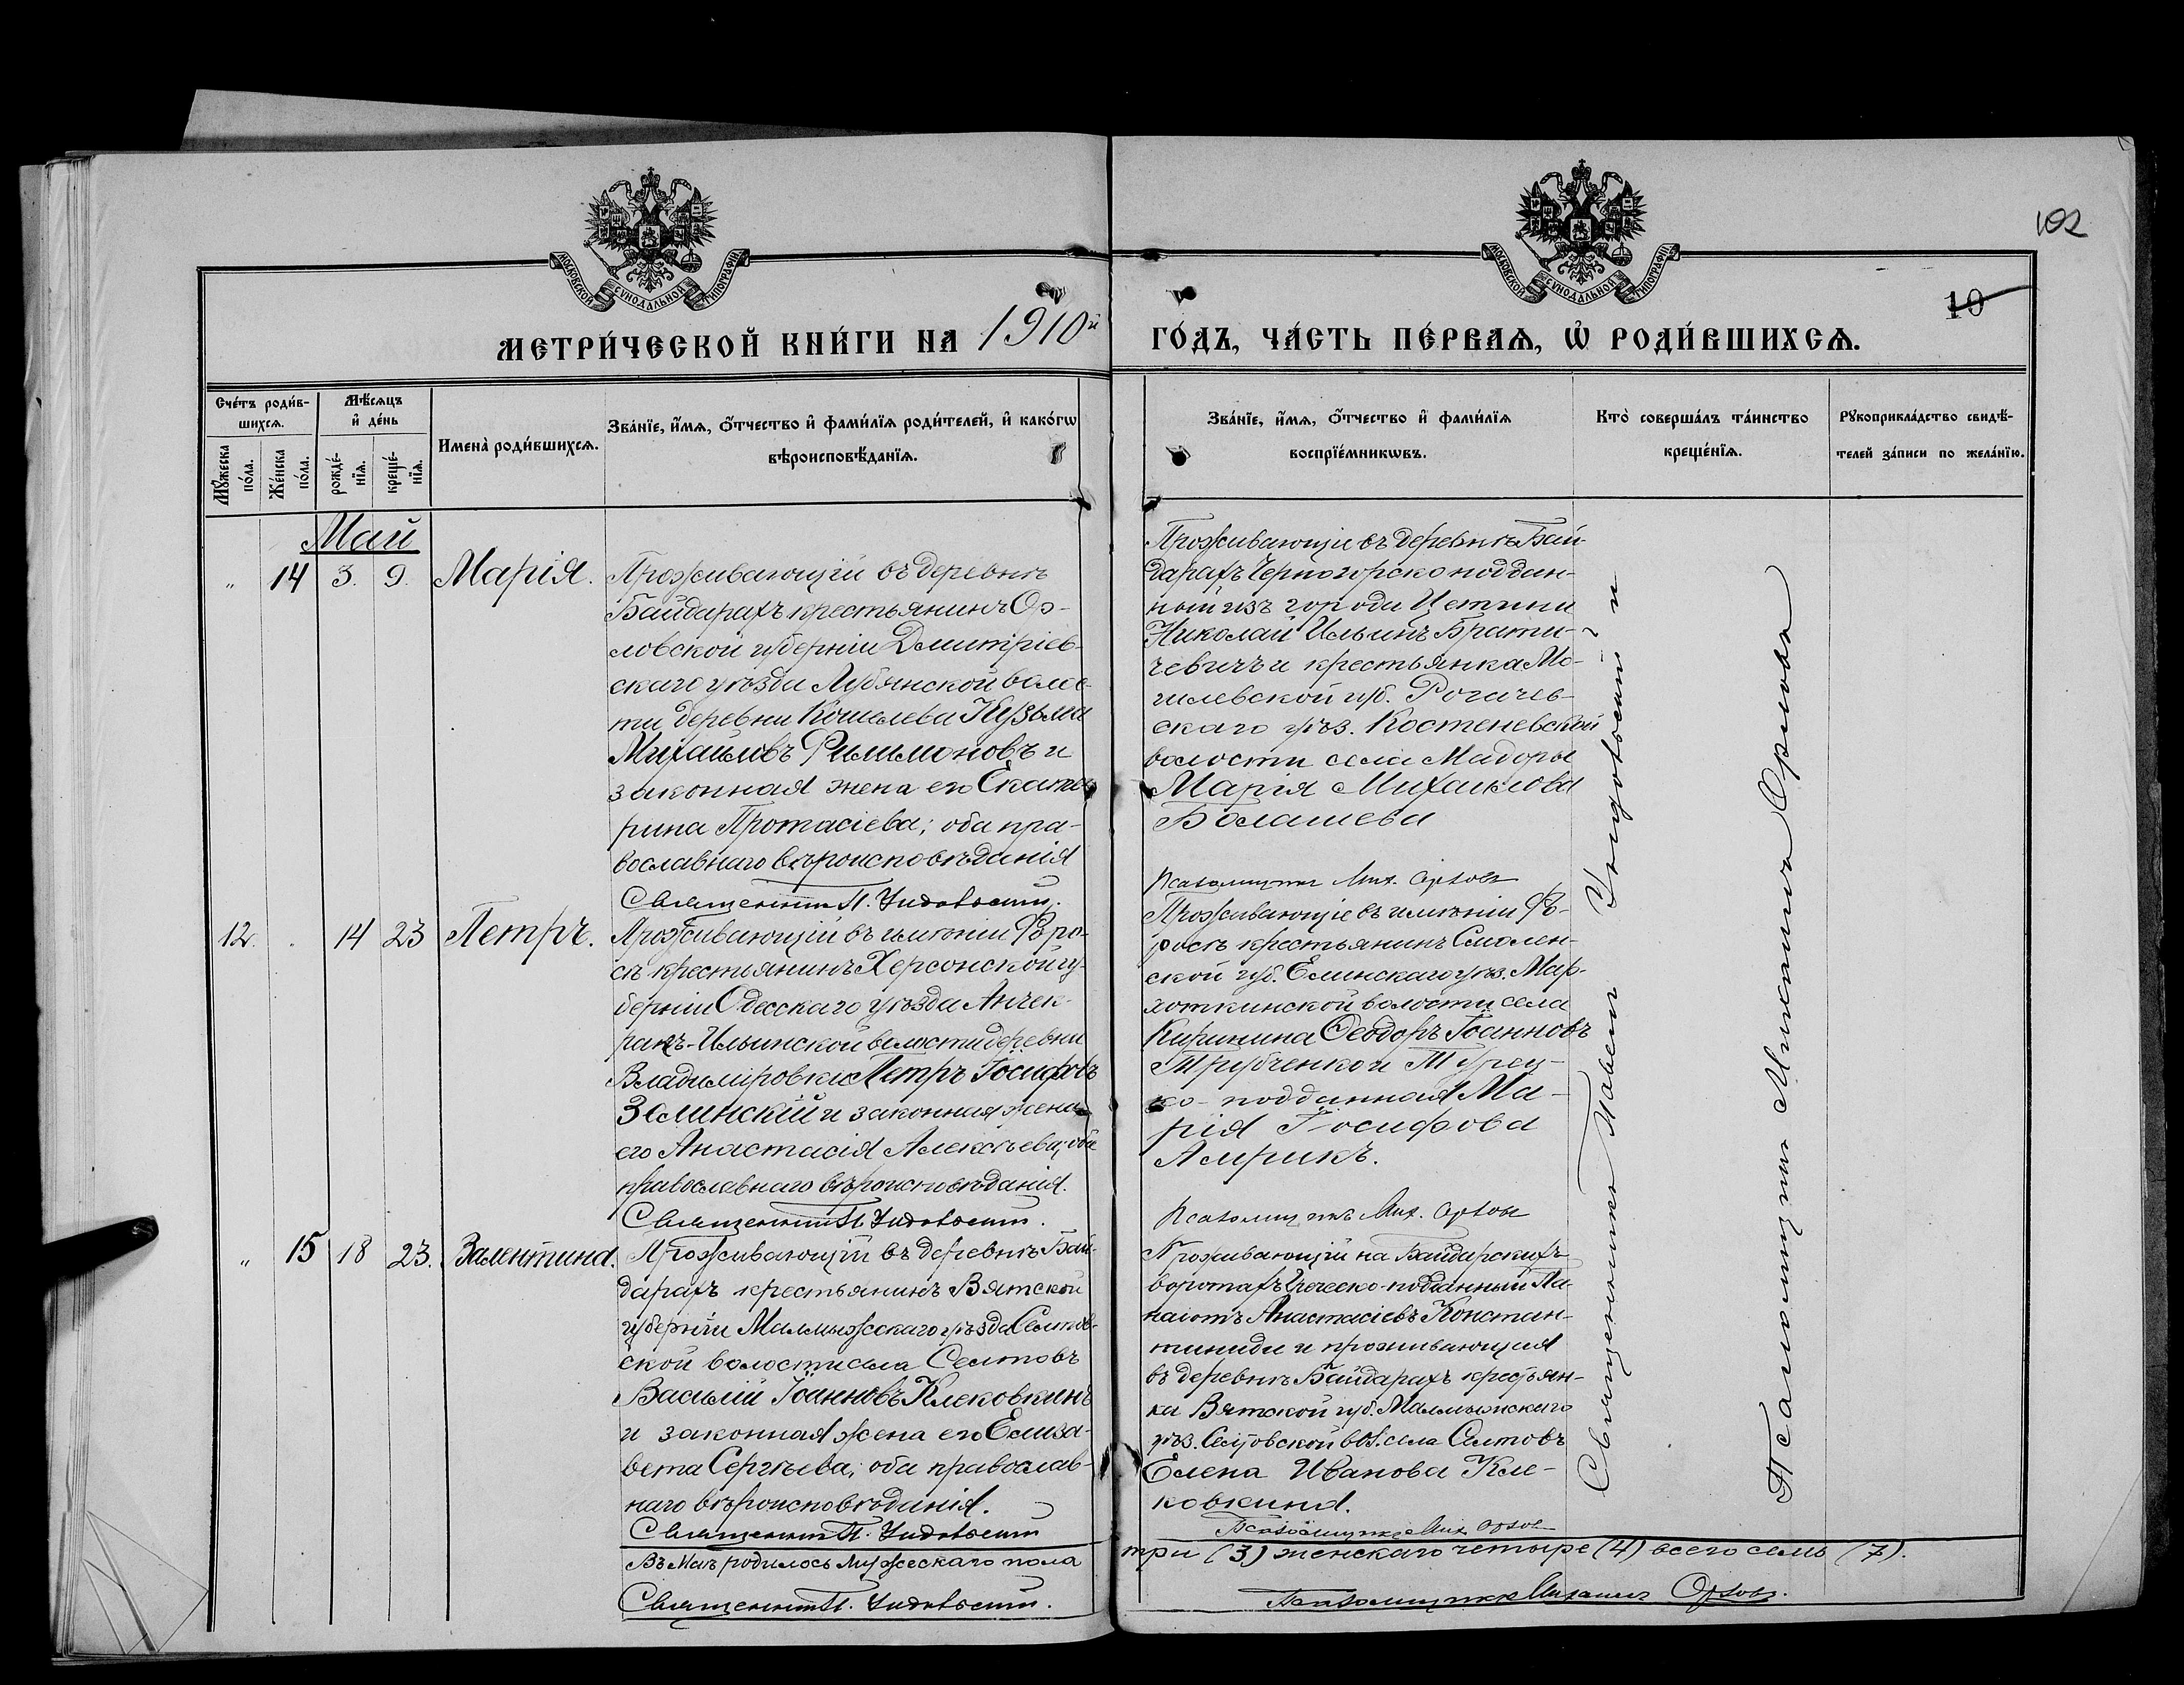 102
10
МОСКОВСКОЙ СУНОДАЛЬНОЙ ТИПОГРАФІИ
МОСКОВСКОЙ СУНОДАЛЬНОЙ ТИПОГРАФІИ
МЕТРИ́ЧЕСКОЙ КНИ́ГИ НА 1910й ГО́ДЪ, ЧА́СТЬ ПЕ́РВАѦ, Ѡ҆ РОДИ́ВШИХСѦ.
Сче́тъ роди́в-
шихсѧ.
Мꙋ́жеска по́ла.
Же́нска по́ла.
Мѣ́сѧцъ и҆ де́нь
рожде́-
нїѧ.
креще́-
нїѧ.
И҆мена̀ роди́вшихсѧ.
Зва́нїе, и҆́мѧ, ѻ҆́тчество и҆ фами́лїѧ роди́телей, и҆ како́гѡ
вѣроисповѣ́данїѧ.
Зва́нїе, и҆́мѧ, ѻ҆́тчество и҆ фами́лїѧ
воспрїе́мникѡвъ.
Кто̀ соверша́лъ та́инство
креще́нїѧ.
Рꙋкоприкла́дство свидѣ́-
телей за́писи по жела́нїю.
Май
" 14 3. 9. Марія.
Проживающій въ деревнѣ
Байдарахъ крестьянинъ Ор-
ловской губерніи Дмитріев-
скаго уѣзда Лубянской волос-
ти деревни Кошелева Кузьма
Михаиловъ Филимоновъ и
законная жена его Екате-
рина Протасіева; оба пра-
вославнаго вѣроисповѣданія
Священникъ П.
Проживающіе въ деревнѣ Бай-
дарахъ Черногорско поддан-
ный изъ города Цетини
Николай Ильинъ Брати-
чевичъ и крестьянка Мо-
гилевской губ. Рогачев-
скаго уѣз. Костеневской
волости села Мадоры
Марія Михаилова
Болашева
Псаломщикъ Мих. Орловъ
12. " 14 23 Петръ.
Проживающій въ имѣніи Форо-
съ крестьянинъ Херсонской гу-
берніи Одесскаго уѣзда Анчек-
ракъ-Ильинской волости деревни
Владиміровки Петръ Іосифовъ
Зелинскій и законная жена
его Анастасія Алексѣева; оба
православнаго вѣроисповѣданія.
Священникъ П.
Проживающіе въ имѣніи Фо-
росъ крестьянинъ Смолен-
ской губ. Елинскаго уѣз. Мар-
хоткинской волости села
Кирикина Ѳеодоръ Іоанновъ
Трубченкои Турец-
ко-подданная Ма-
рія Іосифова
Амрикъ.
Псаломщикъ Мих. Орловъ
" 15 18 23. Валентина.
Проживающій въ деревнѣ Бай-
дарахъ крестьянинъ Вятской
губерніи Малмыжскаго уѣзда Селтов-
ской волости села Селтовъ
Василій Іоанновъ Клековкинъ
и законная жена его Елиза-
вета Сергѣева; оба православ-
наго вѣроисповѣданія.
Священникъ П.
Проживающій на Байдарскихъ
воротахъ Греческо-подданный Па-
наіотъ Анастасіевъ Констан-
тиниди и проживающая
въ деревнѣ Байдарахъ крестьян-
ка Вятской губ. Малмыжскаго
уѣз. Селтовской вол. села Селтовъ
Елена Иванова Кле-
ковкина.
Псаломщикъ Мих. Орловъ
Священникъ Павелъ и
Псаломщикъ Михаилъ Орловъ
Въ Маѣ родилось мужескаго пола три (3) женскаго четыре (4) всего семь (7).
Священникъ П.
Псаломщикъ Михаилъ Орловъ.